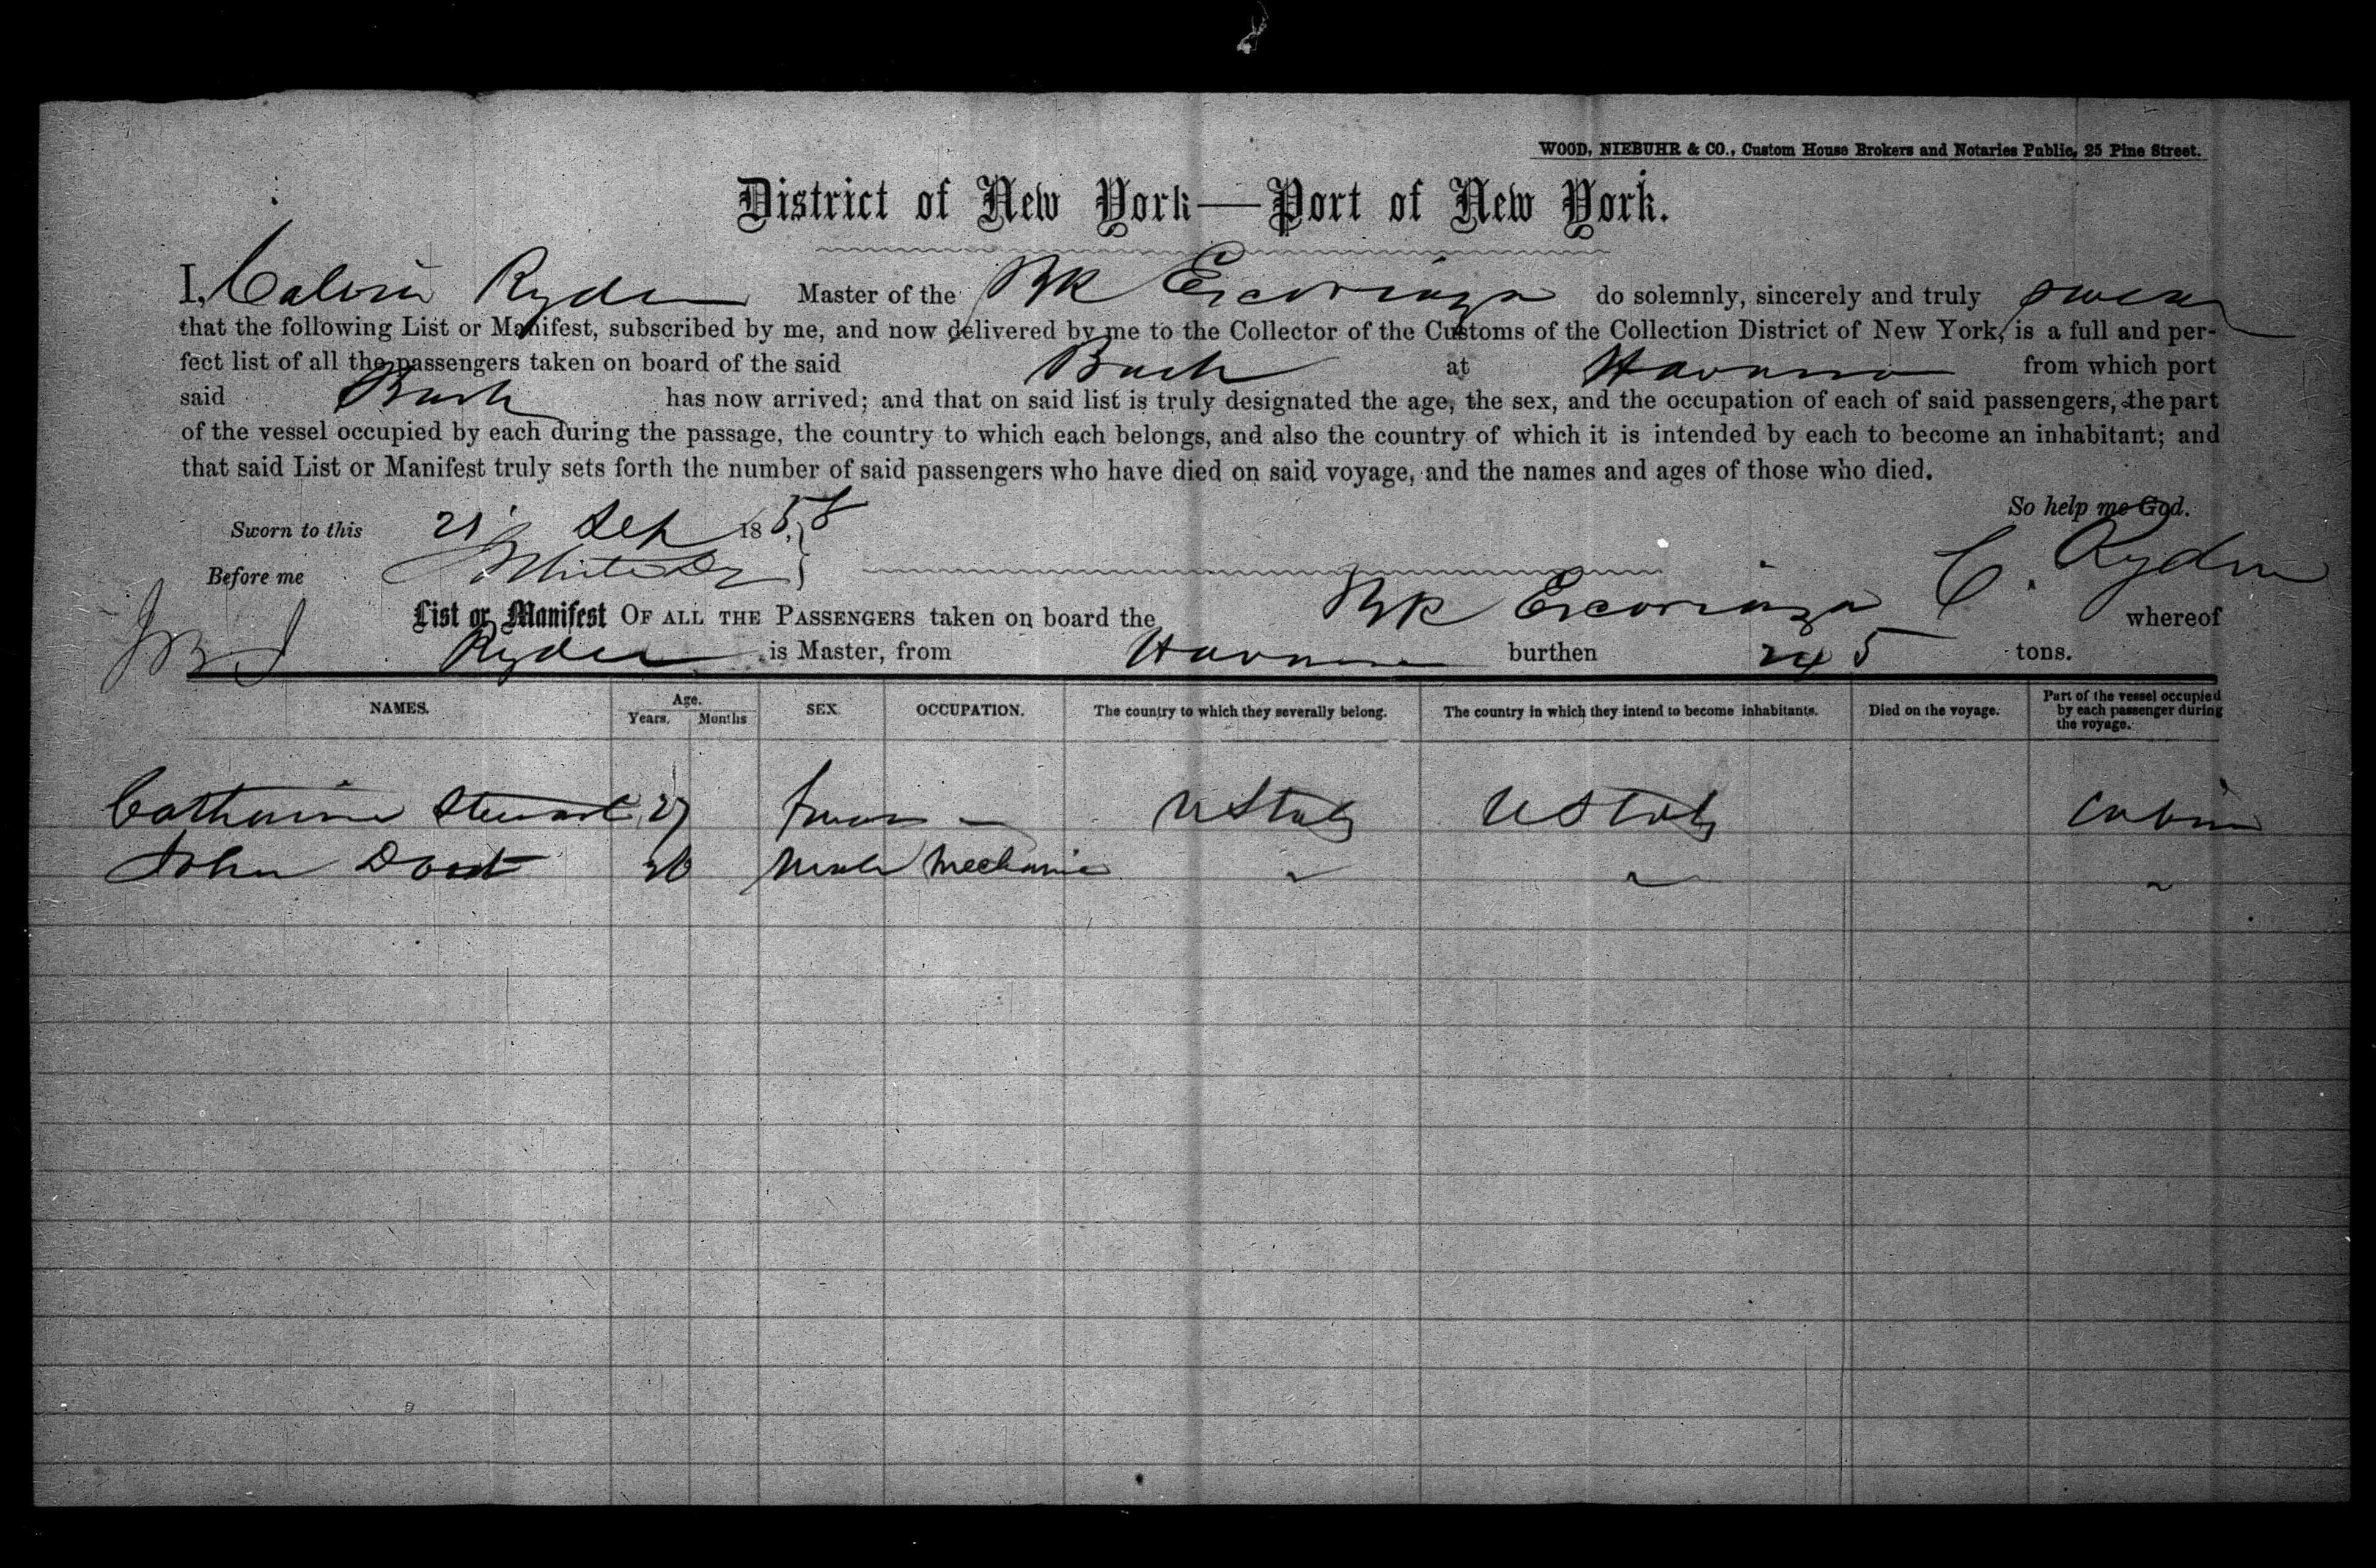 WOOD, NIEBUHR & CO., Custom House Brokers and Notaries Public, 25 Pine Street.
District of New York—Port of New York.
I, Calvin Ryder Master of the Bk Escoriaza do solemnly, sincerely and truly swear
that the following List or Manifest, subscribed by me, and now delivered by me to the Collector of the Customs of the Collection District of New York, is a full and per-
fect list of all the passengers taken on board of the said Bark at Havana from which port
said Bark has now arrived; and that on said list is truly designated the age, the sex, and the occupation of each of said passengers, the part
of the vessel occupied by each during the passage, the country to which each belongs, and also the country of which it is intended by each to become an inhabitant; and
that said List or Manifest truly sets forth the number of said passengers who have died on said voyage, and the names and ages of those who died.
So help me God.
Sworn to this 21 Sep 1858
Before me C. Ryder
List or Manifest OF ALL THE PASSENGERS taken on board the Bk Escoriaza whereof
Ryder is Master, from Havana burthen 245 tons.
NAMES. Age. Years. Months SEX OCCUPATION. The country to which they severally belong. The country in which they intend to become inhabitants. Died on the voyage. Part of the vessel occupied by each passenger during the voyage.
Catharine Stewart 27 — U States U States Cabin
John 26 Male Mechanic " " "